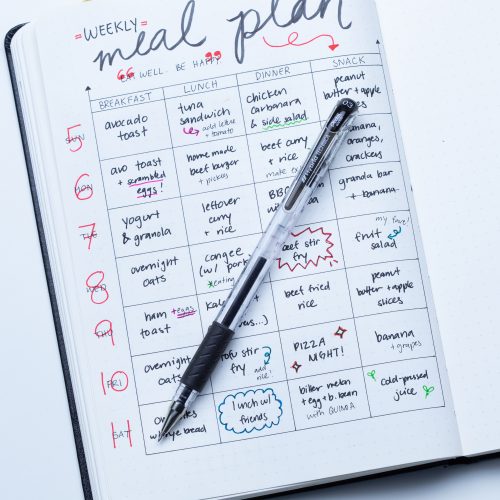 =WEEKLY=
meal plan
" EAT WELL. BE HAPPY "
BREAKFAST LUNCH DINNER SNACK
5 SUN
avocado toast
tuna sandwich
add lettuce + tomato
chicken carbonara & side salad
peanut butter + apple
6 MON
avo toast + scrambled eggs!
homemade beef burger + pickles
beef curry + rice
make
banana, oranges, crackers
7 TUE
yogurt & granola
leftover curry + rice
BBQ
granola bar + banana
8 WED
overnight oats
congee (w/ pork
*eating
beef stir fry
fruit salad
my fave!
9 THU
ham + eggs toast
beef fried rice
peanut butter + apple slices
10 FRI
overnight oats
tofu stir fry
add rice!
PIZZA NIGHT!
banana + grapes
11 SAT
w/ rye bread
lunch w/ friends
bitter melon + egg + b. bean with QUINOA
cold-pressed juice
0.5